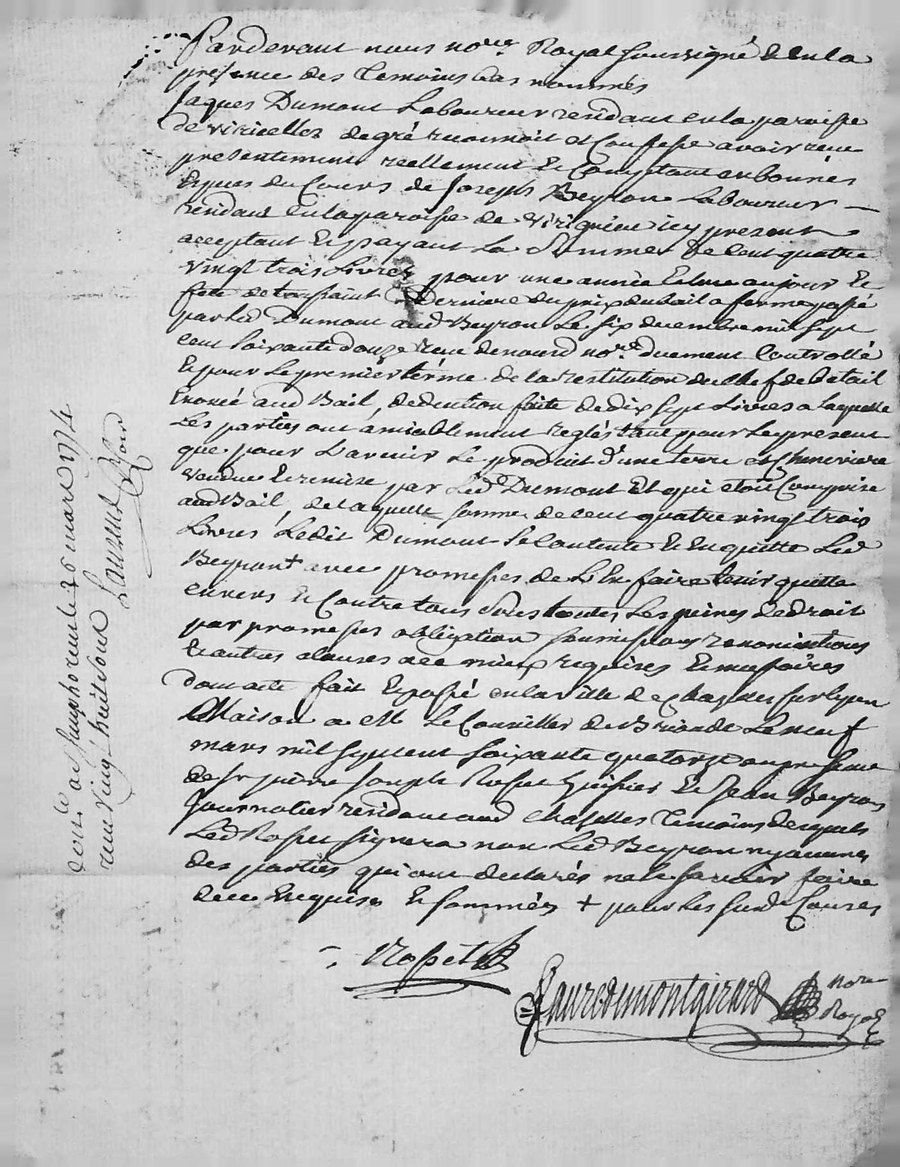 Pardevant nous no.re Royal soussigné & en la
presence des temoins bas nommés
Jaques Dumont Laboureur residant en la paroisse
de viricelles de gré reconnoit et confesse avoir receu
presentement reellement et comptant en bonnes
Espèces du Cours de Joseph Beyron Laboureur
residant en la paroisse de virigneu icy present
acceptant et payant La Somme de Cent quatre
vingt trois Livres pour une année Echue au jour et
fete de toussaint derniere du prix du bail a ferme passé
par led Dumont aud Beyron Le six decembre mil sept
cent soixante douze receu de nousd no.re duement Controllé
Et pour Le premier terme de la restitution du Chef de betail
Enoncé aud Bail, deduction faite de dix sept Livres a laquelle
Les parties ont amiablement reglés tant pour Le present
que pour L'avenir Le produit d'une terre et Cheneviere
vendue Et remise par Led Dumont Et qui etoit Comprise
aud Bail, de laquelle somme de Cent quatre vingt trois
Livres Ledit Dumont se Contente Et En quitte Led
Beyron + avec promesses de L'en faire tenir quitte
envers Et Contre tous sous toutes Les peines de droit
par promesses obligation soumissions renonciations
Et autres clauses a ce mieux requises Et necessaires
dont acte fait Et passé en la ville de Chazelles sur Lyon
Maison a M Le Conseiller de Le neuf
mars mil sept cent soixante quatorze en presence
de sr pierre Joseph Rosset huissier Et Jean Beyron
Journalier residant aud Chazelles temoins desquels
Led Rosset signera non Led Beyron ny aucunes
des parties qui ont declarés ne le savoir faire
de ce Enquises Et sommées + pour Les susd Causes
Rosset
Fauredemontgirard no.re
Royal
Con.lé a St Simphorien le 26 mars 1774
receu vingt huit sous